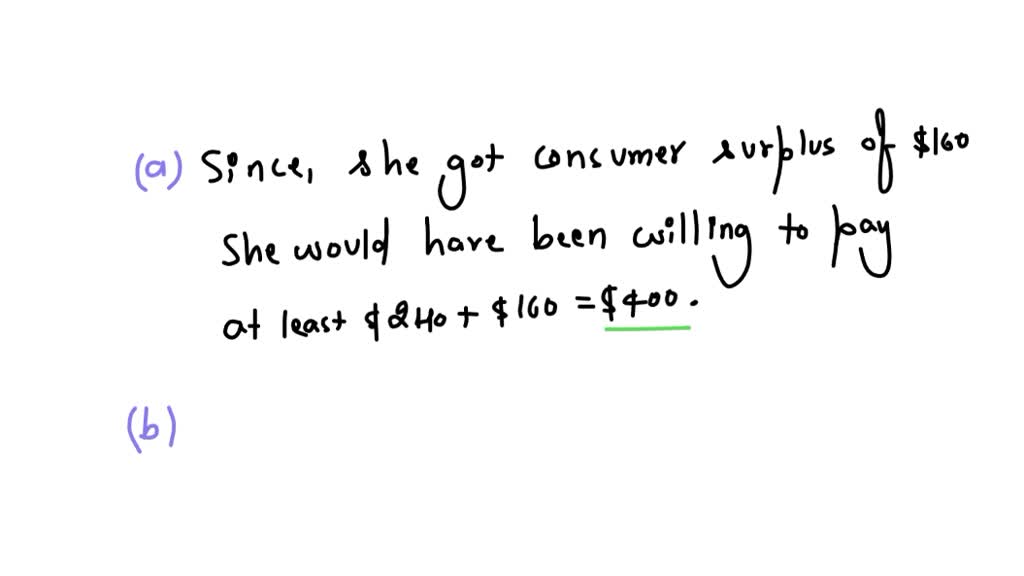 (a) Since, she got consumer surplus of $160
She would have been willing to pay
at least $240 + $160 = $400.
(b)